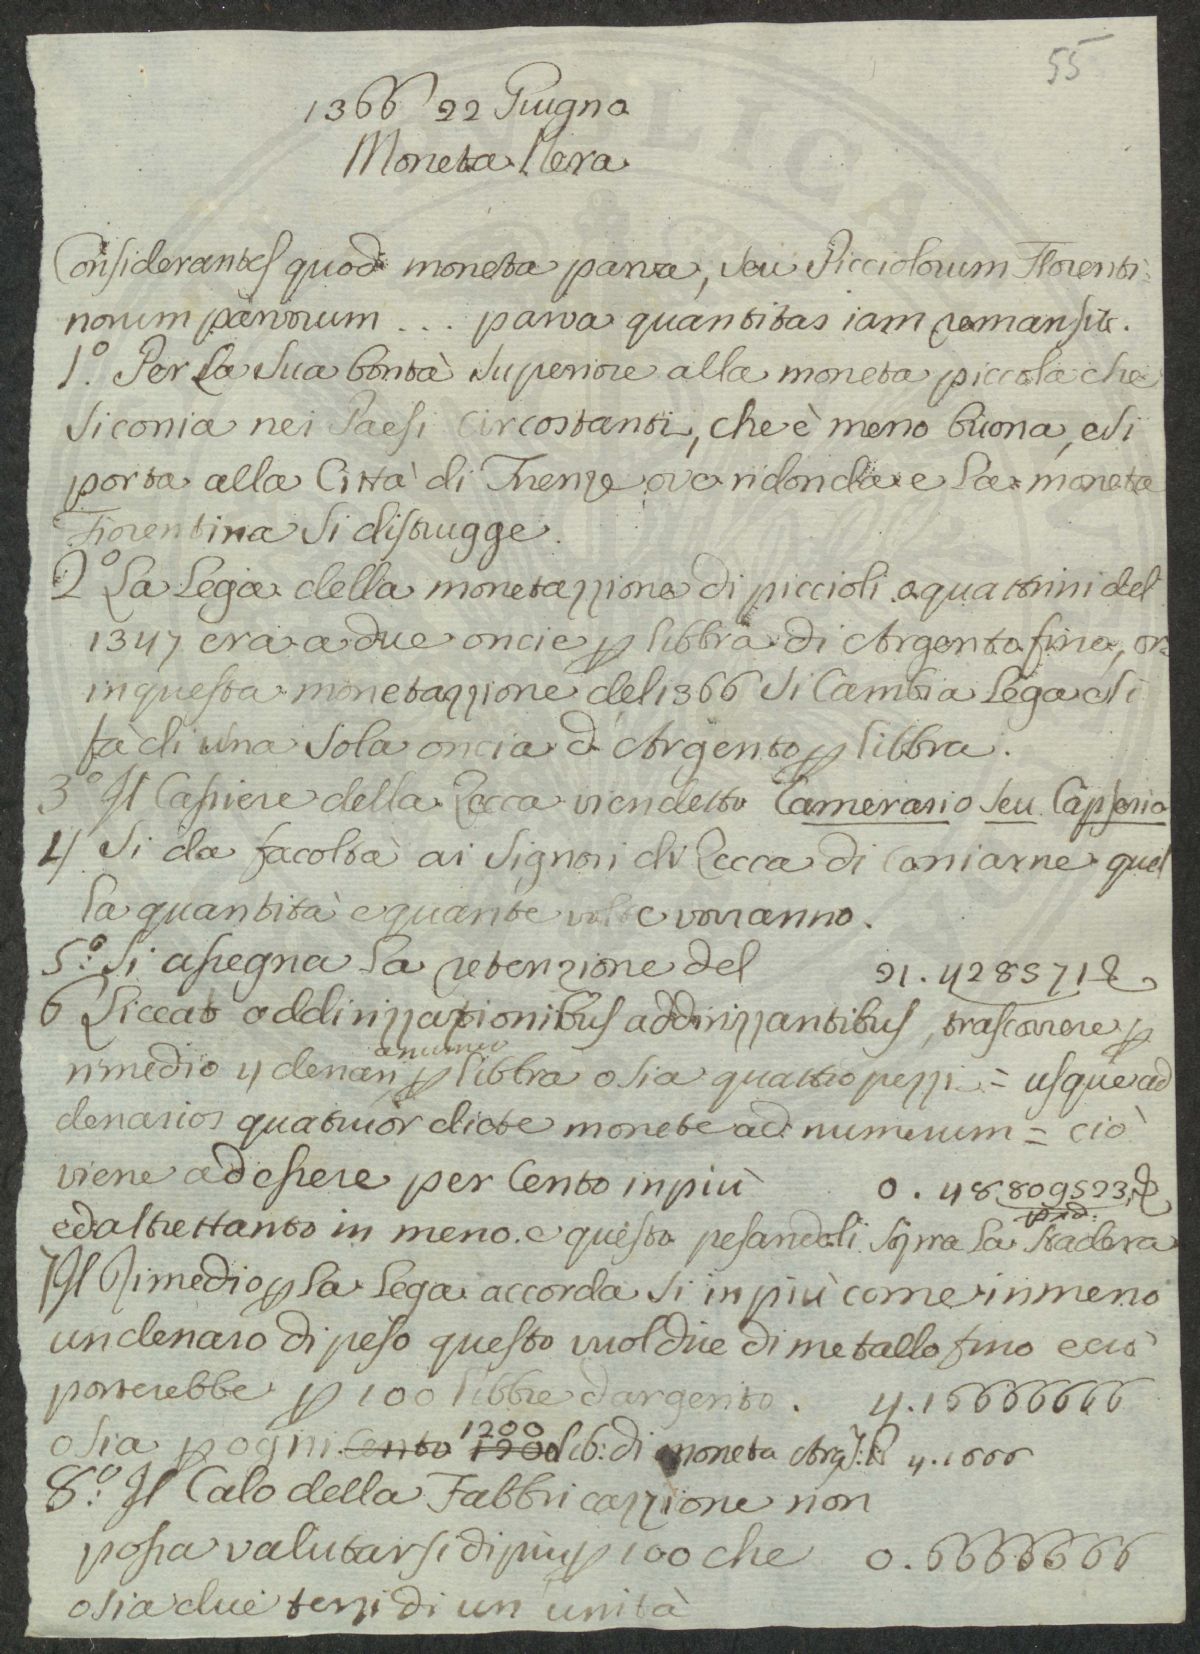 55
1366 22 Giugno
Moneta Nera
Considerantes quod moneta parva, seu Picciolorum Florenti=
norum parvorum ... parva quantitas iam remansit.
1.º Per la sua bontà superiore alla moneta piccola che
si conia nei Paesi circostanti, che è meno buona, e si
porta alla Città di Firenze ove ridonda e la moneta
Fiorentina si distrugge.
2º La Lega della monetazzione di piccioli o quattrini del
1347 era a due oncie p libbra di Argento fine, or
in questa monetazzione del 1366 si Cambia Lega e si
fà di una sola oncia d'Argento p libbra.
3º Il Cassiere della Zecca vien detto Camerario seu Capserio
4 Si da facoltà ai Signori di Zecca di Coniarne quel
la quantità e quante volte vorranno.
5.º Si assegna la retenzione del 21.428571
6 Liceat addirizzationibus addirizzantibus, trascorrere p
rimedio 4 denari a numero p libbra o sia quattro pezzi = usque ad
denarios quatuor dicte monete ad numerum = ciò
viene ad essere per Cento in più 0.48809523
ed altrettanto in meno. e questo pesandoli sopra la Stadera
7 Il Rimedio p la Lega accorda si in più come in meno
un denaro di peso questo vuol dire di metallo fino e ciò
porterebbe p 100 libbre d'argento. 4.16666666
o sia p ogni cento 1200 lib: di moneta 4.1666
8.º Il Calo della Fabbricazzione non
possa valutarsi di più p 100 che 0.6666666
o sia due terzi di un unità